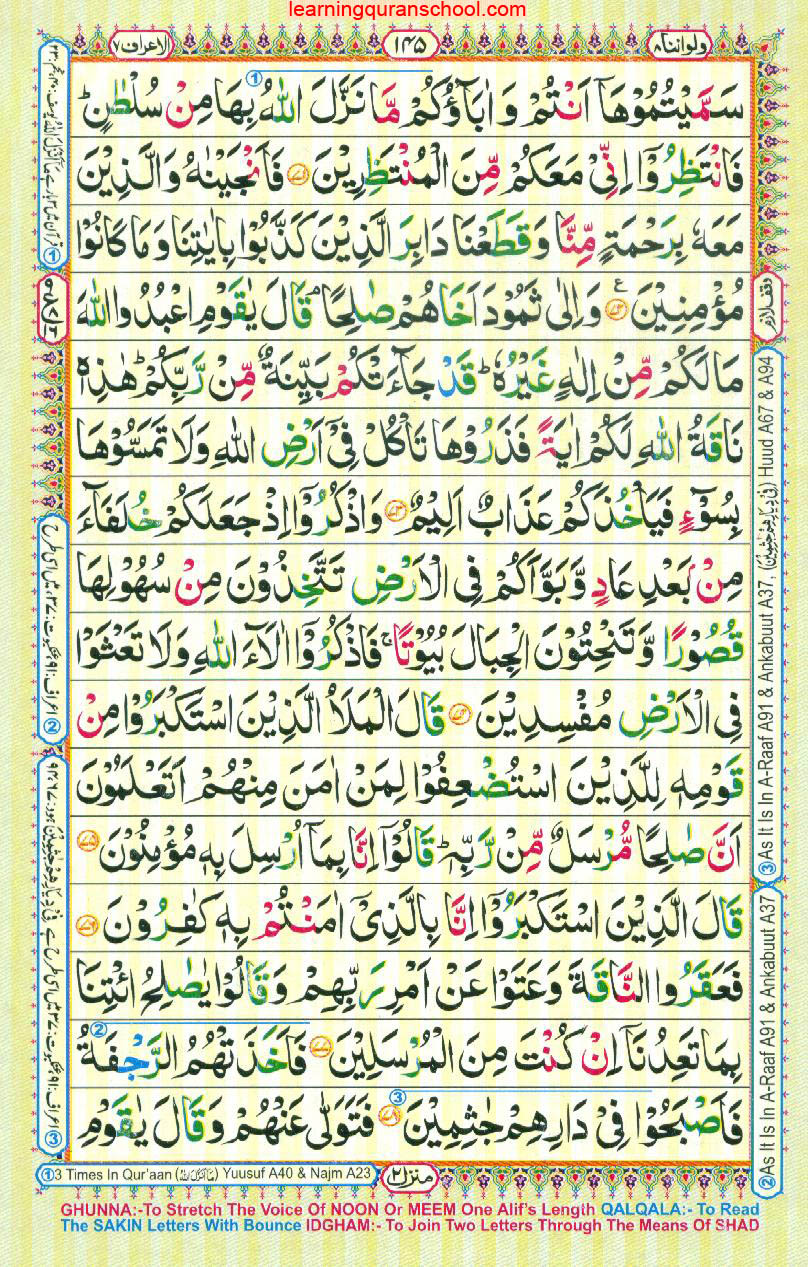 learningquranschool.com
ولواننا ۸
۱۴۵
الاعراف ۷
سَمَّیْتُمُوْهَاۤ اَنْتُمْ وَ اٰبَآؤُكُمْ مَّا نَزَّلَ اللّٰهُ بِهَا مِنْ سُلْطٰنٍؕ
فَانْتَظِرُوْۤا اِنِّیْ مَعَكُمْ مِّنَ الْمُنْتَظِرِیْنَ ۷۱ فَاَنْجَیْنٰهُ وَ الَّذِیْنَ
مَعَهٗ بِرَحْمَةٍ مِّنَّا وَ قَطَعْنَا دَابِرَ الَّذِیْنَ كَذَّبُوْا بِاٰیٰتِنَا وَ مَا كَانُوْا
مُؤْمِنِیْنَ ۷۲ ع وَ اِلٰی ثَمُوْدَ اَخَاهُمْ صٰلِحًاۘ قَالَ یٰقَوْمِ اعْبُدُوا اللّٰهَ
مَا لَكُمْ مِّنْ اِلٰهٍ غَیْرُهٗؕ قَدْ جَآءَتْكُمْ بَیِّنَةٌ مِّنْ رَّبِّكُمْؕ هٰذِهٖ
نَاقَةُ اللّٰهِ لَكُمْ اٰیَةً فَذَرُوْهَا تَاْكُلْ فِیْۤ اَرْضِ اللّٰهِ وَ لَا تَمَسُّوْهَا
بِسُوْٓءٍ فَیَاْخُذَكُمْ عَذَابٌ اَلِیْمٌ ۷۳ وَ اذْكُرُوْۤا اِذْ جَعَلَكُمْ خُلَفَآءَ
مِنْۢ بَعْدِ عَادٍ وَّ بَوَّاَكُمْ فِی الْاَرْضِ تَتَّخِذُوْنَ مِنْ سُهُوْلِهَا
قُصُوْرًا وَّ تَنْحِتُوْنَ الْجِبَالَ بُیُوْتًاۚ فَاذْكُرُوْۤا اٰلَآءَ اللّٰهِ وَ لَا تَعْثَوْا
فِی الْاَرْضِ مُفْسِدِیْنَ ۷۴ قَالَ الْمَلَاُ الَّذِیْنَ اسْتَكْبَرُوْا مِنْ
قَوْمِهٖ لِلَّذِیْنَ اسْتُضْعِفُوْا لِمَنْ اٰمَنَ مِنْهُمْ اَتَعْلَمُوْنَ
اَنَّ صٰلِحًا مُّرْسَلٌ مِّنْ رَّبِّهٖؕ قَالُوْۤا اِنَّا بِمَاۤ اُرْسِلَ بِهٖ مُؤْمِنُوْنَ ۷۵
قَالَ الَّذِیْنَ اسْتَكْبَرُوْۤا اِنَّا بِالَّذِیْۤ اٰمَنْتُمْ بِهٖ كٰفِرُوْنَ ۷۶
فَعَقَرُوا النَّاقَةَ وَ عَتَوْا عَنْ اَمْرِ رَبِّهِمْ وَ قَالُوْا یٰصٰلِحُ ائْتِنَا
بِمَا تَعِدُنَاۤ اِنْ كُنْتَ مِنَ الْمُرْسَلِیْنَ ۷۷ فَاَخَذَتْهُمُ الرَّجْفَةُ
فَاَصْبَحُوْا فِیْ دَارِهِمْ جٰثِمِیْنَ ۷۸ فَتَوَلّٰی عَنْهُمْ وَ قَالَ یٰقَوْمِ
وقف لازم
③ As It Is In A-Raaf A91 & Ankabuut A37, (فِیْ دِیَارِهِمْ جٰثِمِیْنَ) Huud A67 & A94
② As It Is In A-Raaf A91 & Ankabuut A37
① 3 Times In Qur'aan (مَاۤ اَنْزَلَ اللّٰهُ) Yuusuf A40 & Najm A23
منزل ۲
GHUNNA:-To Stretch The Voice Of NOON Or MEEM One Alif's Length QALQALA:- To Read
The SAKIN Letters With Bounce IDGHAM:- To Join Two Letters Through The Means Of SHAD